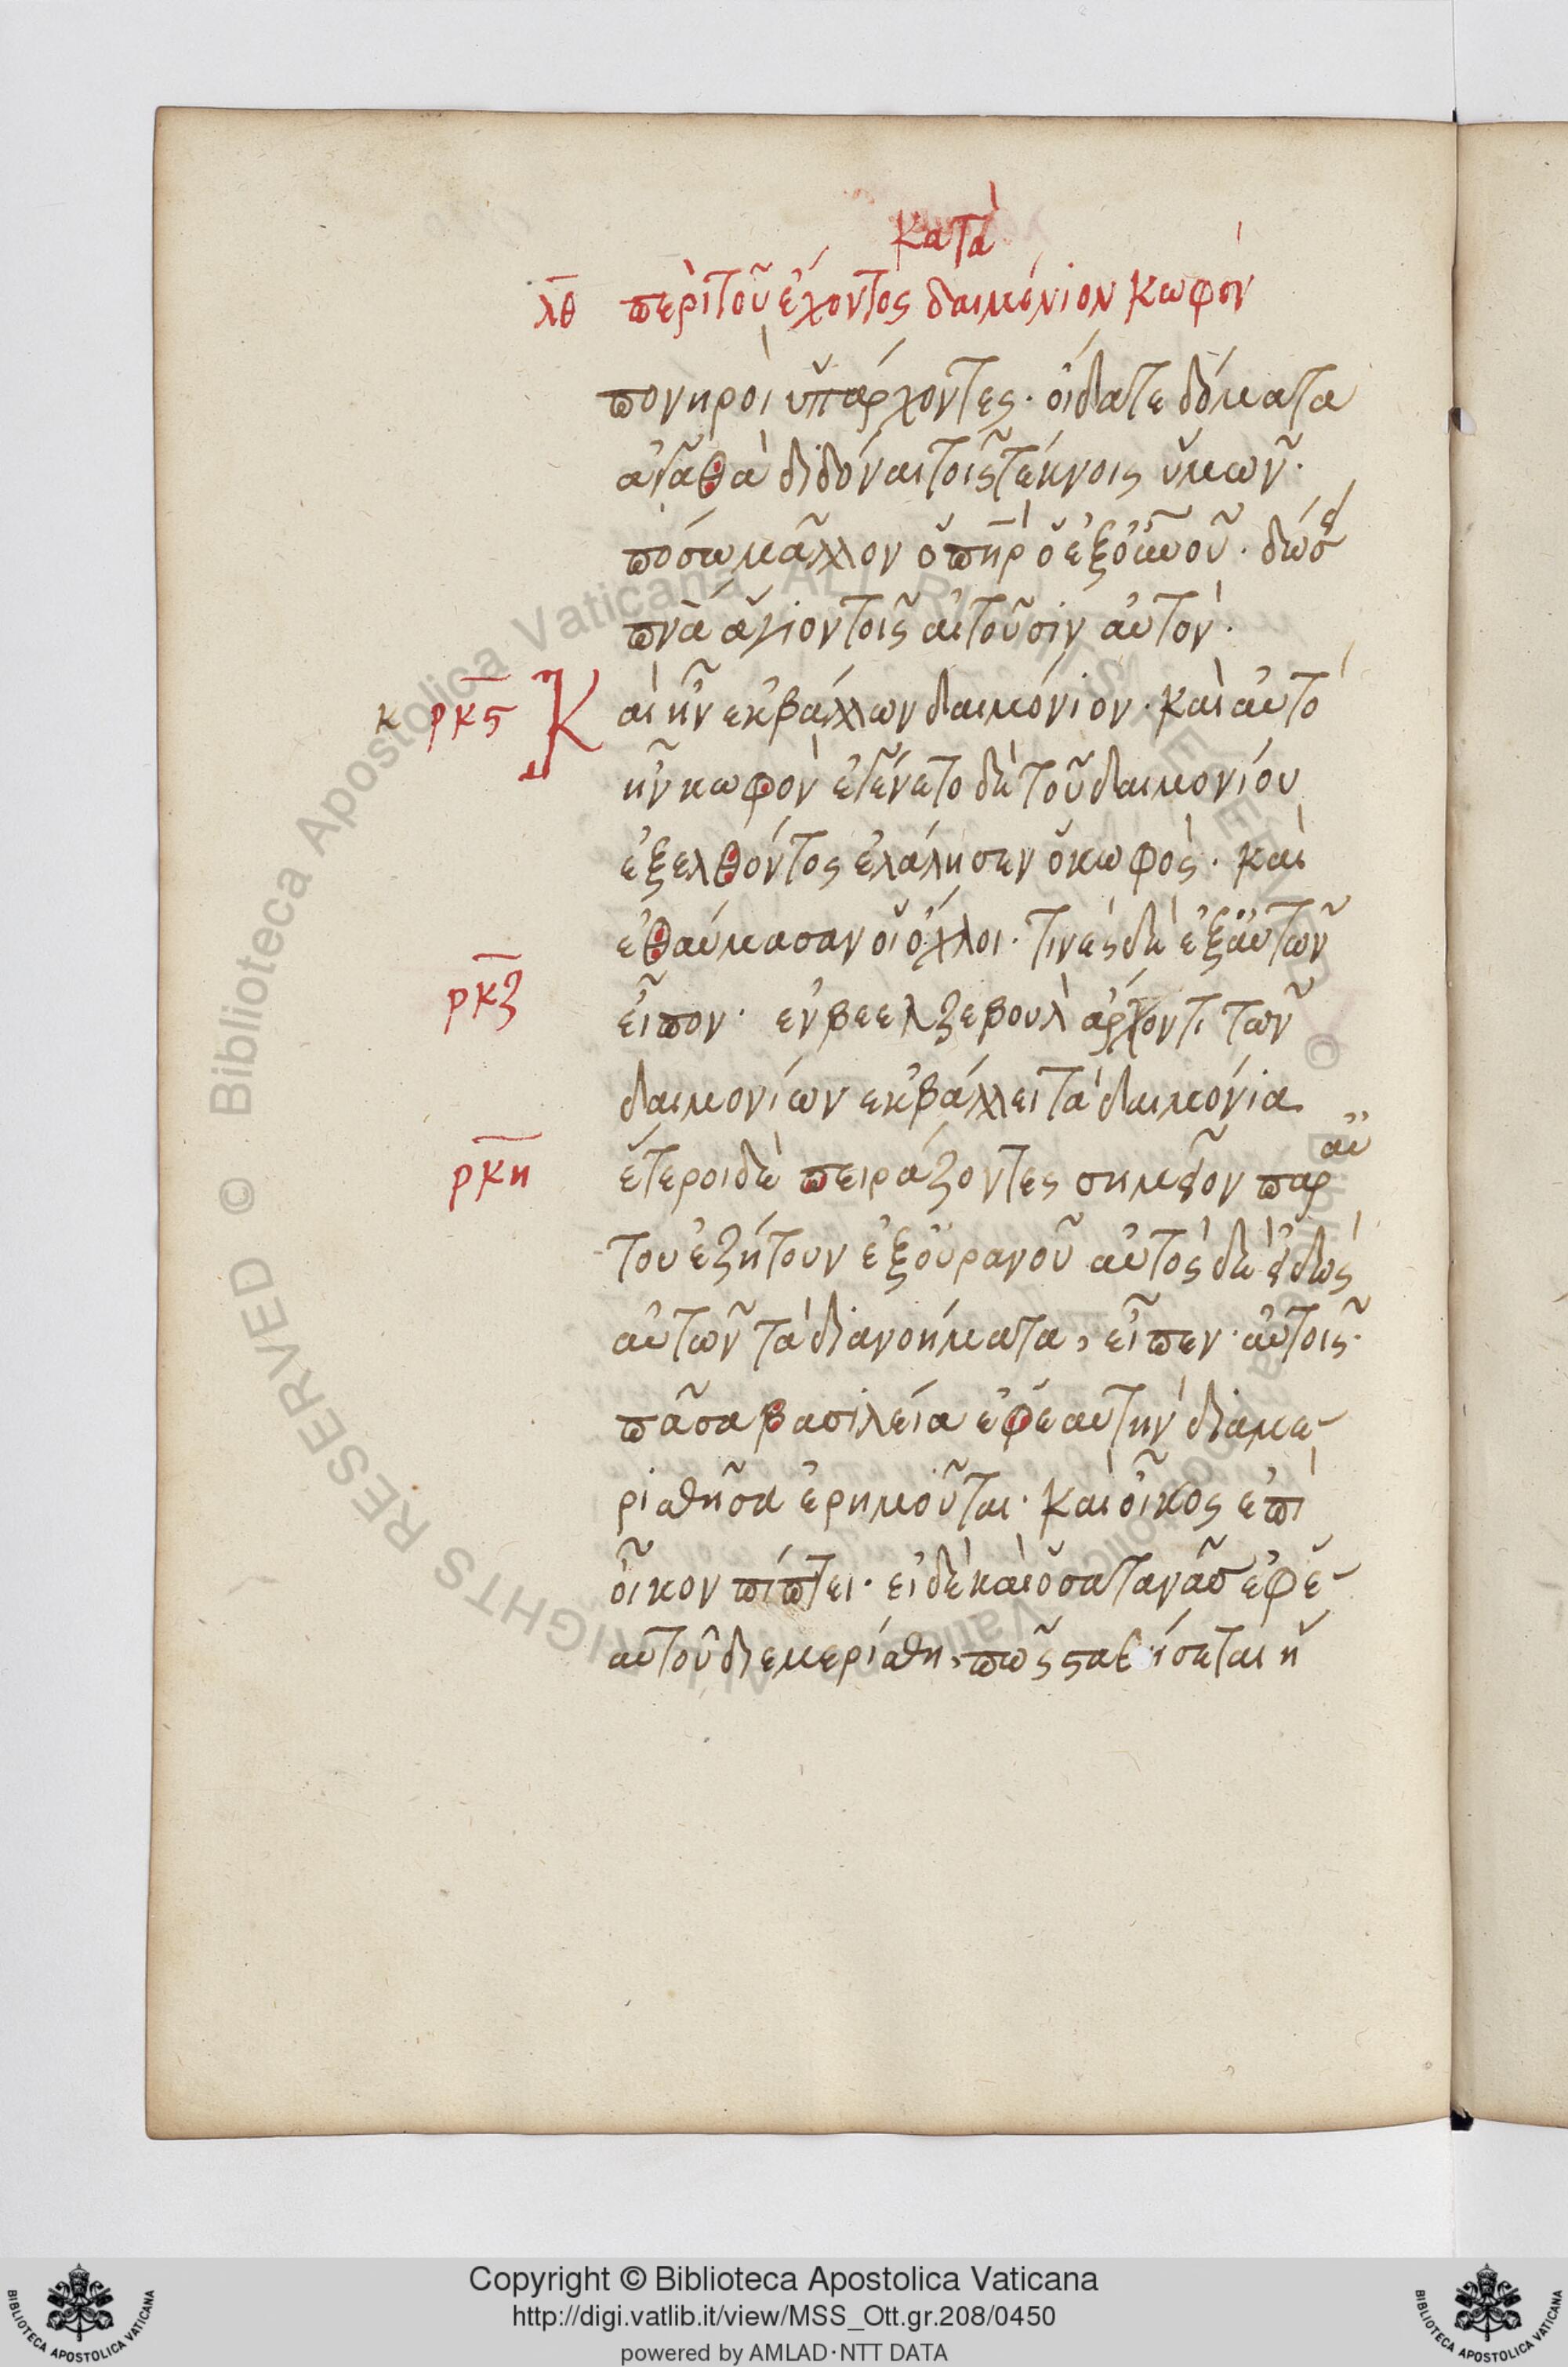 κατὰ
λθ περὶ τοῦ ἔχοντος δαιμόνιον κωφόν
πονηροὶ ὑπάρχοντες· οἴδατε δόματα
ἀγαθὰ διδόναι τοῖς τέκνοις ὑμῶν·
πόσω μᾶλλον ὁ πηρ ὁ ἐξ οὐνοῦ· δώσει
πνα ἅγιον τοῖς αἰτοῦσιν αὐτόν·
κ ρκϛ Καὶ ἦν ἐκβάλλων δαιμόνιον· καὶ αὐτὸ
ἦν κωφὸν ἐγένετο δὲ τοῦ δαιμονίου
ἐξελθόντος ἐλάλησεν ὁ κωφὸς· καὶ
ἐθαύμασαν οἱ ὄχλοι· τινὲς δὲ ἐξ αὐτῶν
ρκζ εἶπον· ἐν βεελζεβουλ ἄρχοντι τῶν
δαιμονίων ἐκβάλλει τὰ δαιμόνια
ρκη ἕτεροι δὲ πειράζοντες σημεῖον παρ αὐ
του ἐζήτουν ἐξ οὐρανοῦ αὐτὸς δὲ εἰδὼς
αὐτῶν τὰ διανοήματα, εἶπεν αὐτοῖς·
πᾶσα βασιλεία ἐφ ἑαυτὴν διαμε-
ρισθῆσα ἐρημοῦται· καὶ οἶκος ἐπὶ
οἶκον πίπτει· εἰ δὲ καὶ ὁ σατανᾶσ ἐφ ἑ-
αυτοῦ διεμερίσθη, πῶς σταθήσεται ἡ
Copyright © Biblioteca Apostolica Vaticana
http://digi.vatlib.it/view/MSS_Ott.gr.208/0450
powered by AMLAD·NTT DATA